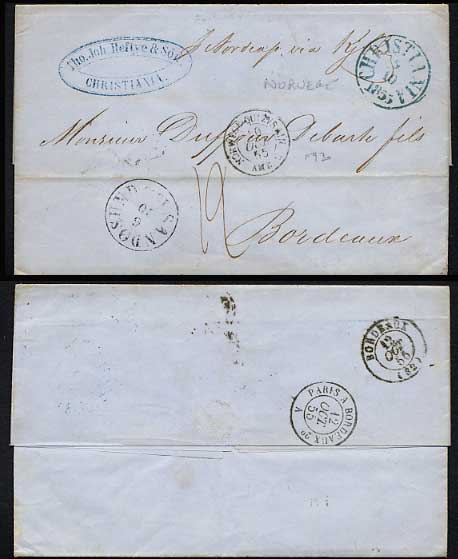 Tho. Joh. Heftye & Søn
CHRISTIANIA.
via
CHRISTIANIA
10
1855
NORVEGE
Monsieur Duffour Debarte fils
OCT
55
12
SANDÖSUND
6
10
Bordeaux
BORDEAUX
12
OCT
55
(32)
PARIS A BORDEAUX 2º A
12
OCT
55